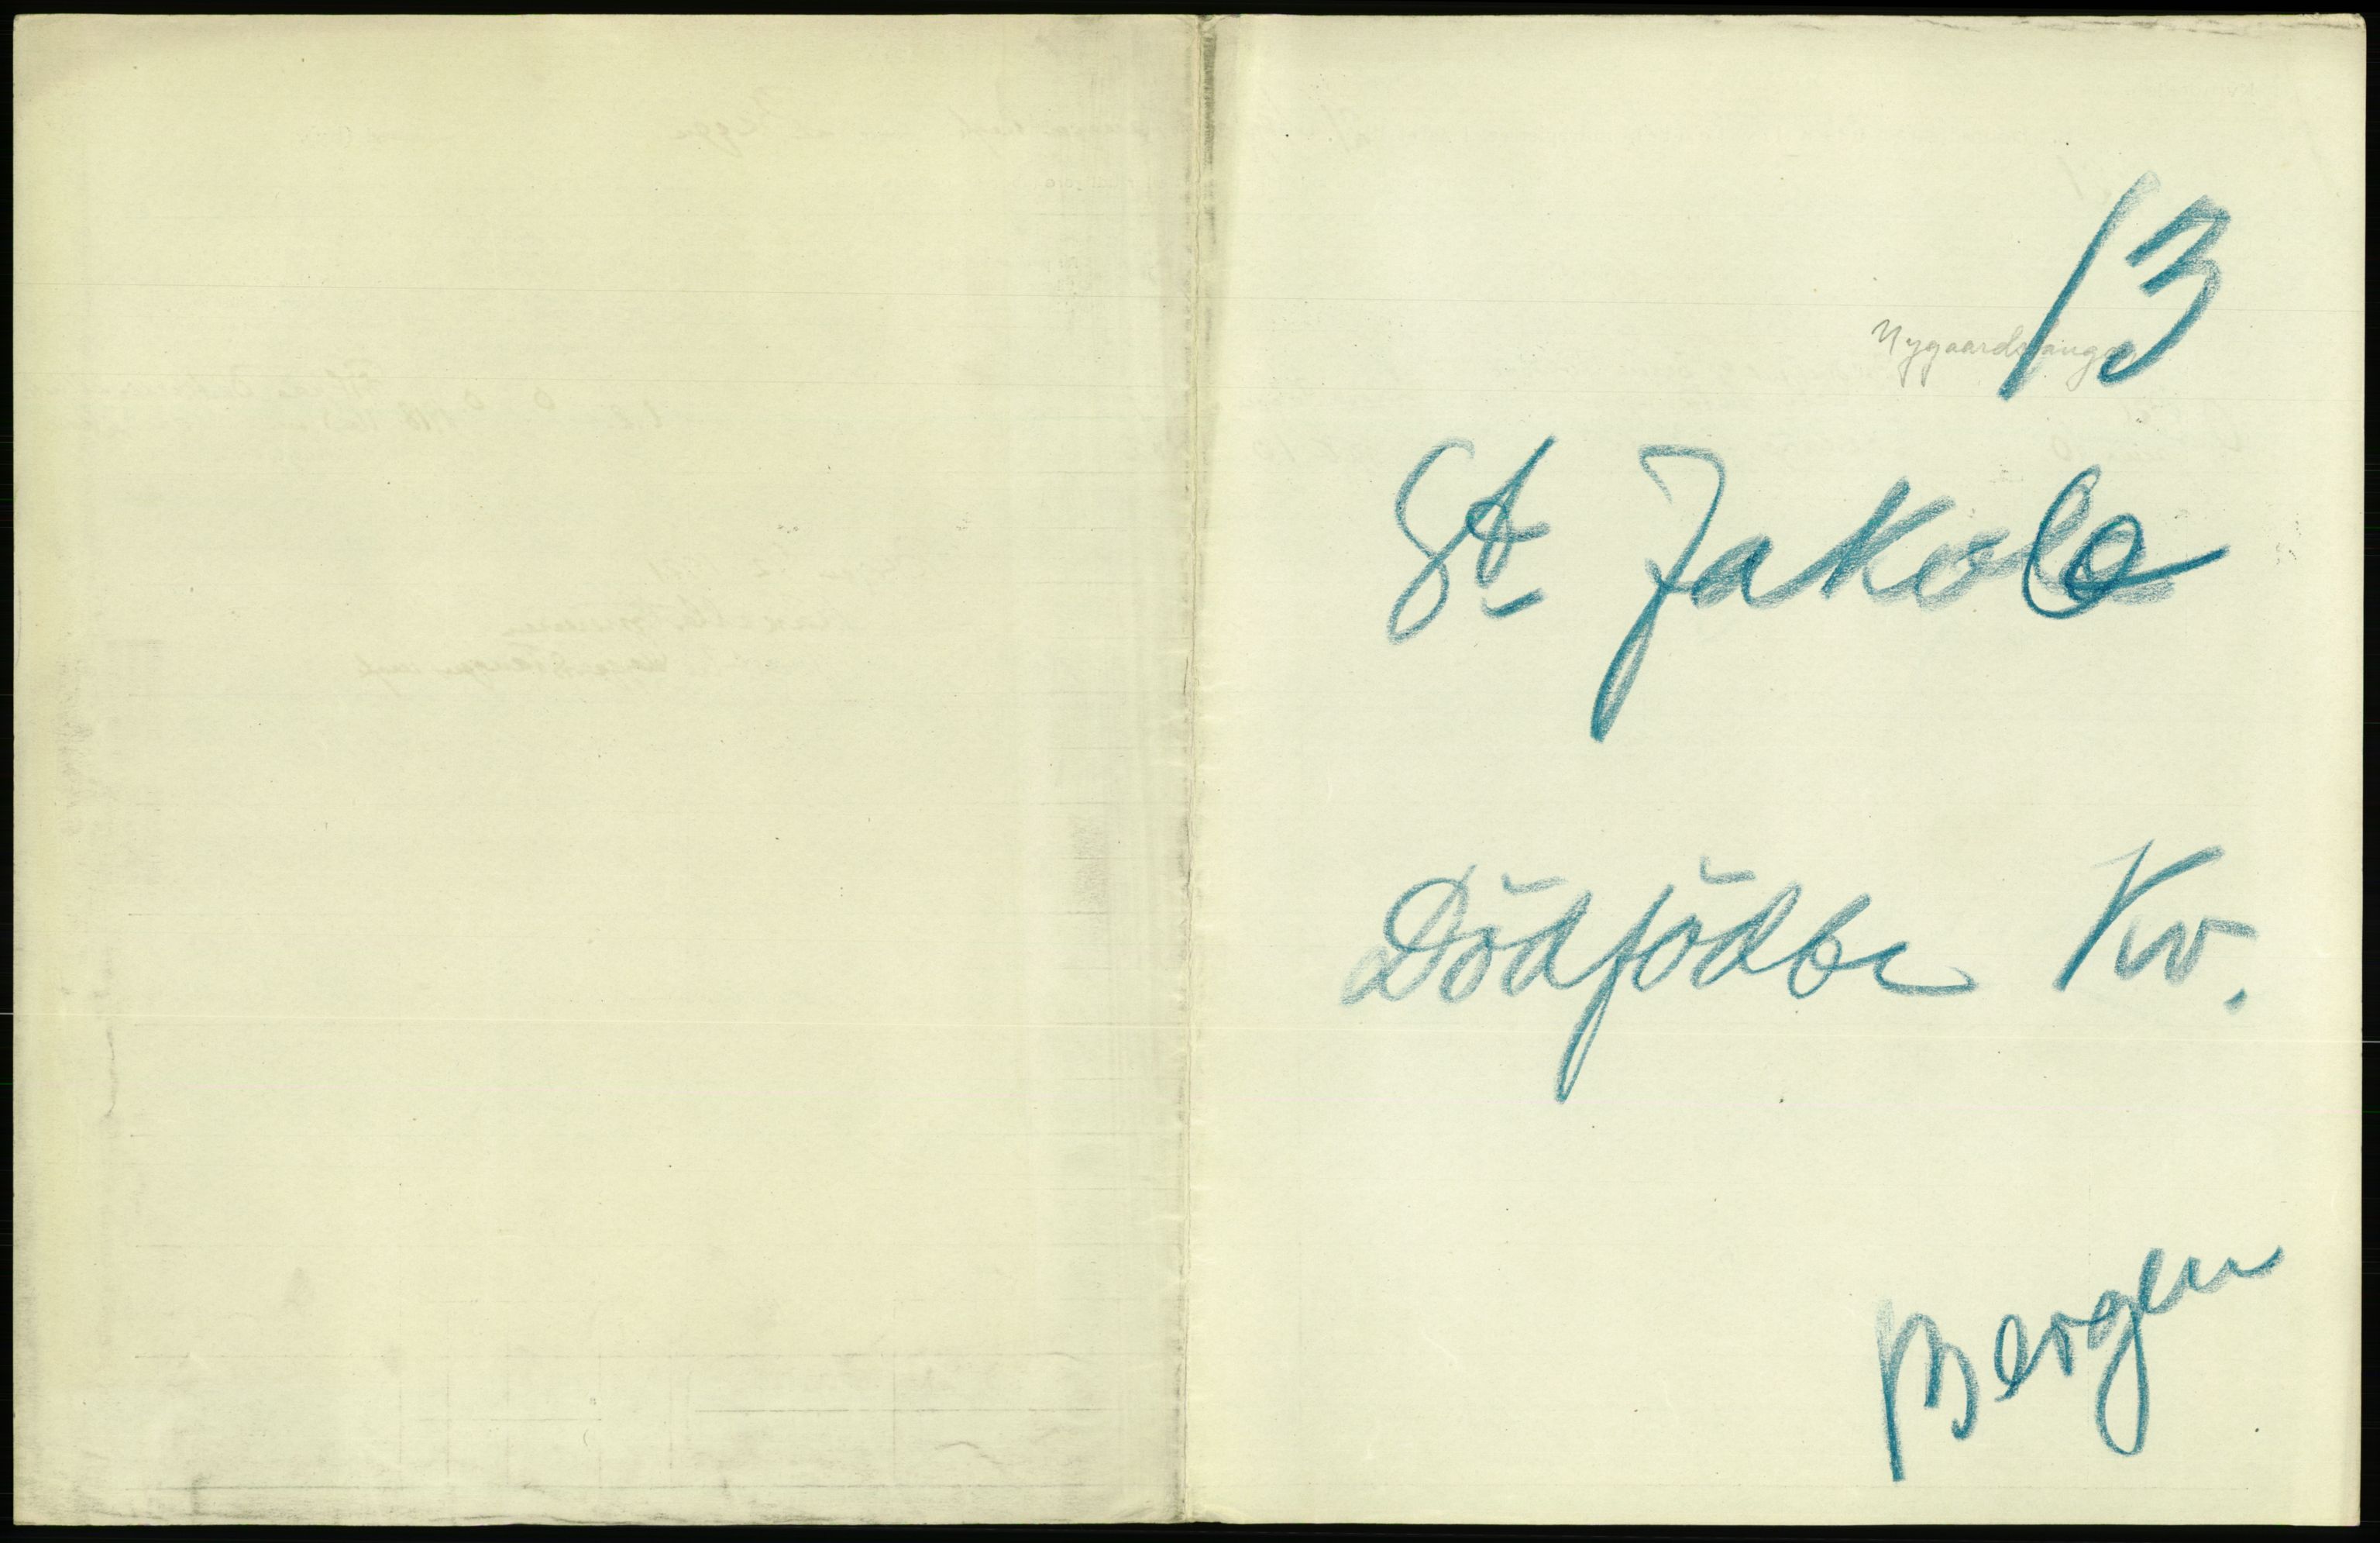 13
Nygaardstangen
St Jakob
Dödfödte Kv.
Bergen